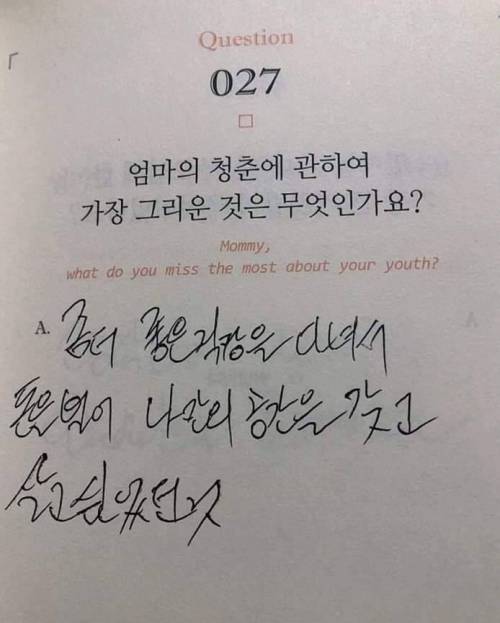 Question
027
엄마의 청춘에 관하여
가장 그리운 것은 무엇인가요?
Mommy,
what do you miss the most about your youth?
A. 좀더 좋은 직장을 다녀서
돈을 벌어 나만의 공간을 갖고
살고 싶었던 것